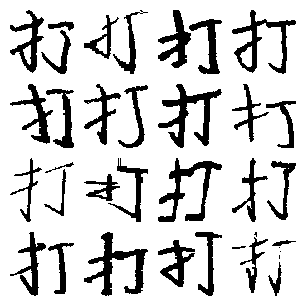 打打打打
打打打打
打打打打
打打打打